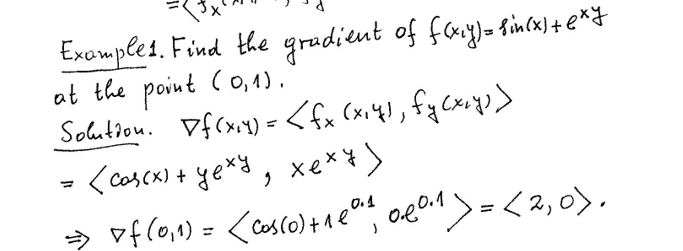 =⟨f_x
Example1. Find the gradient of f(x,y)=sin(x)+e^{xy}
at the point (0,1).
Solution. ∇f(x,y) = ⟨f_x (x,y), f_y(x,y)⟩
= ⟨cos(x) + ye^{xy}, xe^{xy}⟩
⇒ ∇f(0,1) = ⟨cos(0)+1e^{0.1}, 0.e^{0.1}⟩ = ⟨2,0⟩.